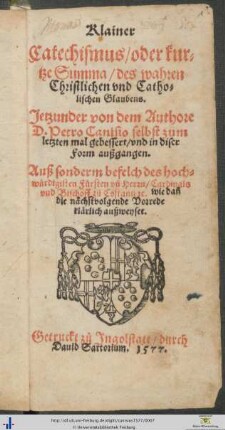 Klainer
Catechismus/oder kur-
tze Summa/des wahren
Christlichen vnd Catho-
lischen Glaubens.
Jetzunder von dem Authore
D. Petro Canisio selbst zum
letzten mal gebessert/vnd in diser
Form außgangen.
Auß sonderm befelch des hoch-
würdigisten Fürsten vñ Herrn/Cardinals
vnd Bischoff zů Costantz/ wie dañ
die nächstvolgende Vorrede
klärlich außweyset.
Getruckt zů Ingolstatt/durch
Dauid Sartorium. 1577.